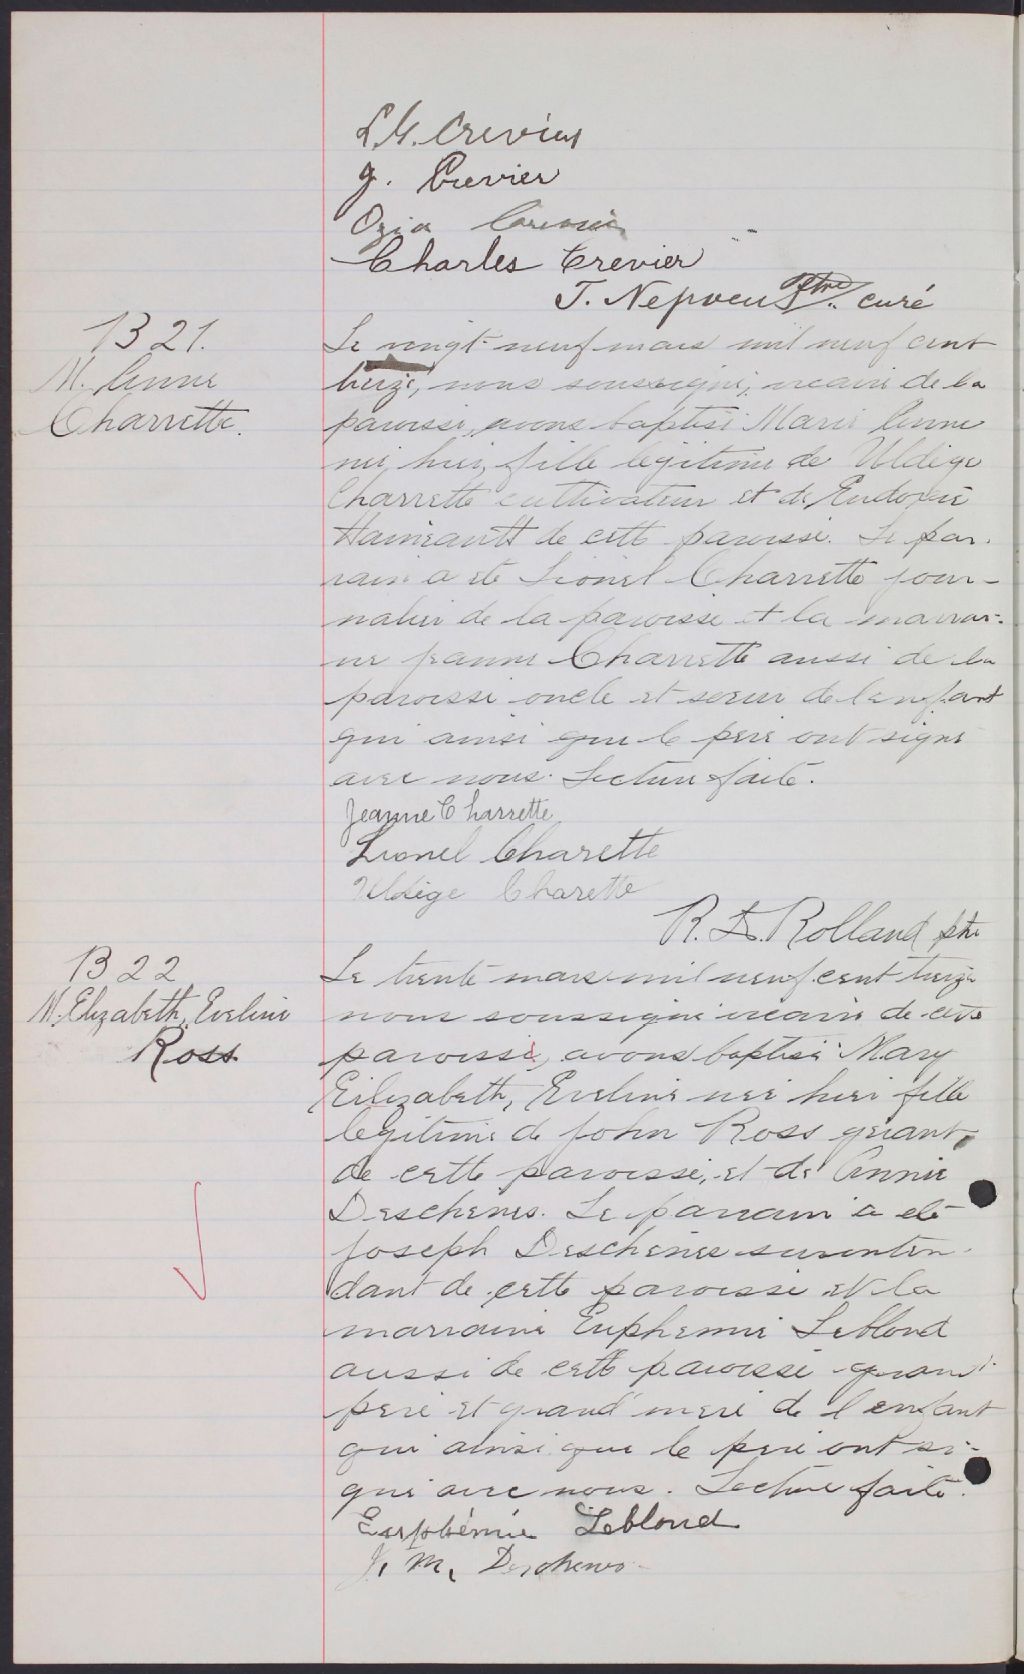 L.G. Crevier
J. Crevier
Ozia Crevier
Charles Crevier
J. Nepveu Ptre. curé
B 21.
M. Anne
Charrette.
Le vingt-neuf mars mil neuf cent
treize, nous soussigné, vicaire de la
paroisse, avons baptisé Marie Anne
née hier, fille légitime de Uldège
Charrette cultivateur et de Eudoxie
de cette paroisse. Le par-
rain a été Lionel Charrette jour-
nalier de la paroisse et la marrai-
ne Jeanne Charrette aussi de la
paroisse oncle et soeur de l'enfant
qui ainsi que le père ont signé
avec nous. Lecture faite.
Jeanne Charrette
Lionel Charette
Uldège Charette
R. D. Rolland ptre
B 22
M. Elizabeth, Eveline
Ross
Le trente mars mil neuf cent treize
nous soussigné vicaire de cette
paroisse, avons baptisé Mary
Eilizabeth, Eveline née hier fille
légitime de John Ross gérant,
de cette paroisse, et de Annie
Deschenes. Le parrain a été
Joseph Deschenes surinten-
dant de cette paroisse et la
marraine Euphemie Leblond
aussi de cette paroisse grand-
père et grand'mère de l'enfant
qui ainsi que le père ont si-
gné avec nous. Lecture faite.
Eurphémie Leblond
J. M. Deschenes